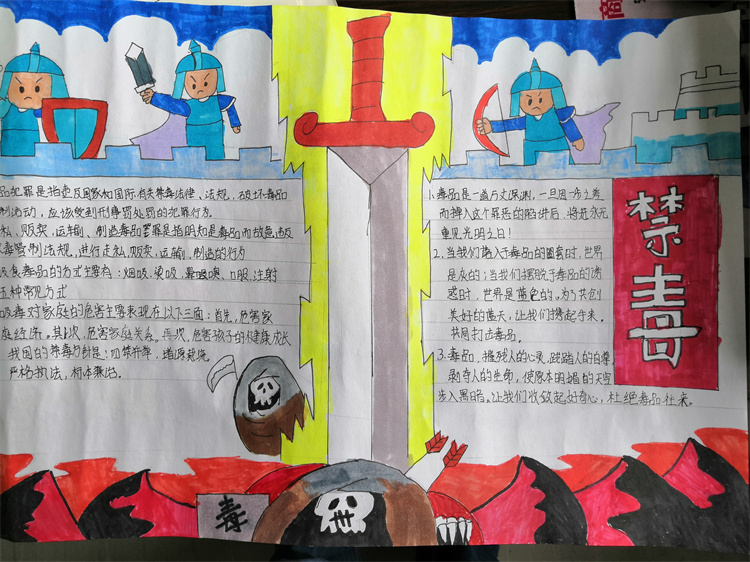 品犯罪是指违反国家和国际有关禁毒法律、法规，破坏毒品
制活动，应该受到刑事罚处罚的犯罪行为
私、贩卖，运输、制造毒品罪是指明知是毒品而故意违反
毒管制法规，进行走私，贩卖，运输，制造的行为
吸食毒品的方式主要为：烟吸，烫吸，鼻吸嗅，口服，注射
五种常见方式
吸毒对家庭的危害主要表现在以下三面：首先，危害家
庭经济。其次，危害家庭关系。再次，危害孩子的健康成长
我国的禁毒方针是：四禁并举，堵源截流
严格执法，标本兼治。
1.毒品是一道万丈深渊，一旦因一步之差
而掉入这个罪恶的陷阱后，将是永无
重见光明之日！
2.当我们落入于毒品的圈套时，世界
是灰的；当我们摆脱于毒品的诱
惑时，世界是蓝色的。为了共创
美好的蓝天，让我们携起手来。
共同打击毒品。
3.毒品，摧残人的心灵，践踏人的自尊
剥夺人的生命，使原本明媚的天空
步入黑暗。让我们收敛起好奇心，杜绝毒品往来。
禁毒
毒